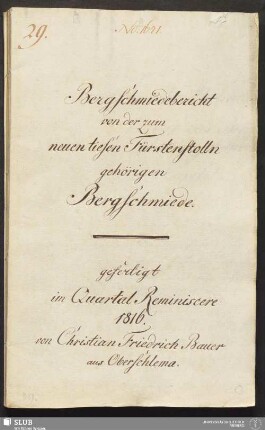 29.
Bergschmiedebericht
von der zum
neuen tiefen Fürstenstolln
gehörigen
Bergschmiede.
gefertigt
im Quartal Reminiscere
1816.
von Christian Friedrich Bauer
aus Oberschlema.
SLUB